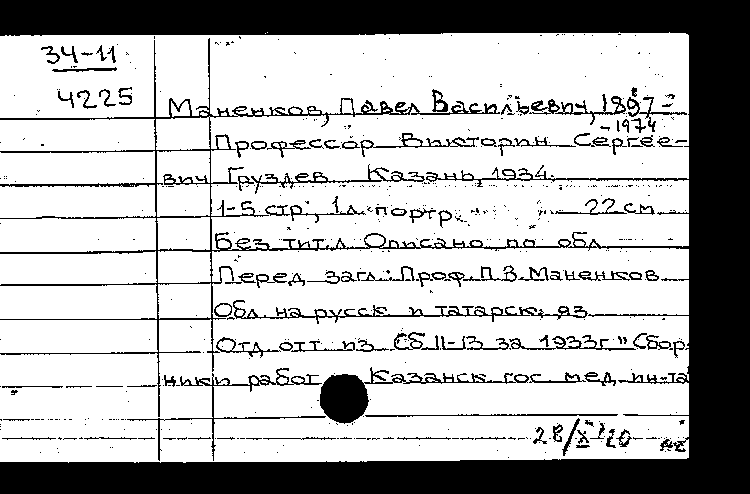 34-11
4225
Маненков, Павел Васильевич, 1897-
-1974
Профессор Викторин Сергее-
вич Груздев Казань, 1934.
1-5 стр., 1 л. портр. 22 см
Без тит.л Описано по обл
Перед загл.: Проф. П.В. Маненков
Обл на русск и татарск. яз
Отд отт из Сб II-13 за 1933г "Сбор-
ники работ Казанск гос мед ин-та
28/X